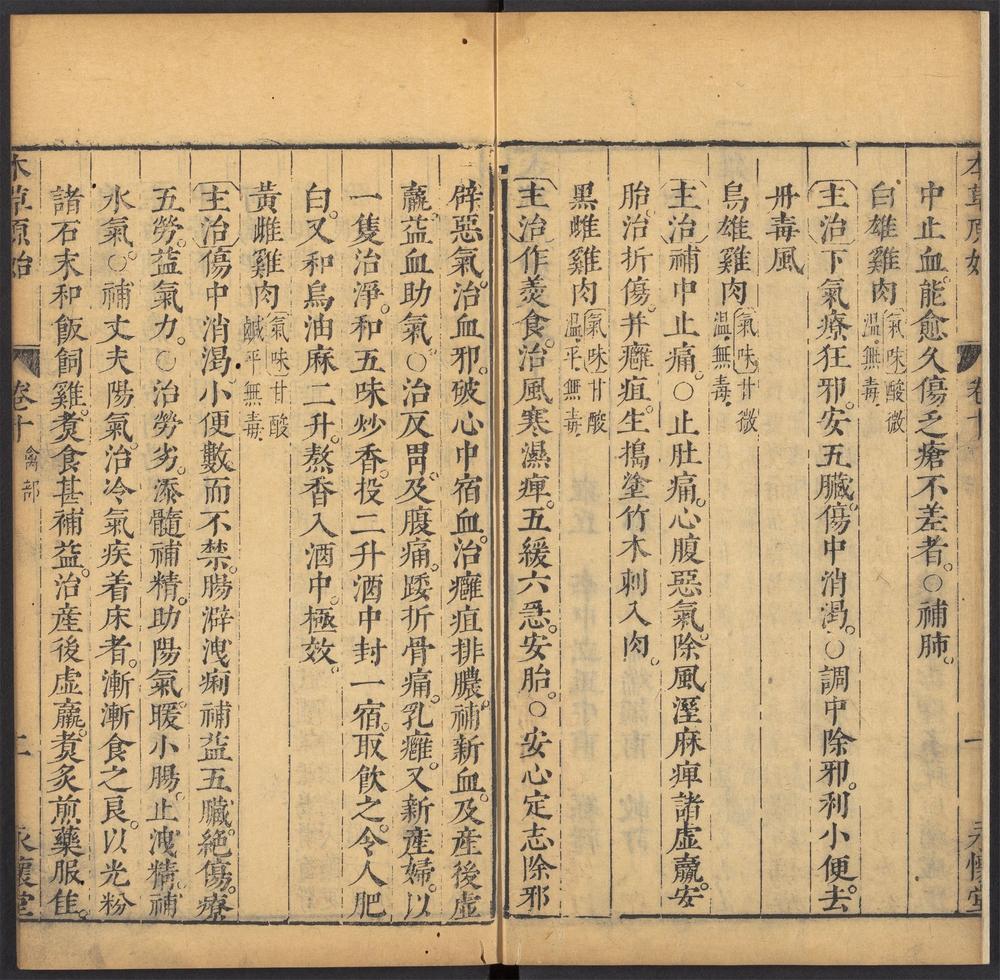 中止血。能愈久傷乏瘡不差者。○補肺。
白雄雞肉 氣味酸微温。無毒。
主治下氣療狂邪。安五臟。傷中消渴。○調中除邪。利小便。去
丹毒風
烏雄雞肉 氣味甘微温。無毒。
主治補中止痛。○止肚痛。心腹惡氣。除風溼麻痺諸虛羸。安
胎。治折傷。并癰疽。生搗塗竹木刺入肉。
黑雌雞肉 氣味甘酸温。平。無毒。
主治作羹食。治風寒濕痺。五緩六急。安胎。○安心定志除邪
辟惡氣。治血邪。破心中宿血。治癰疽排膿。補新血。及產後虛
羸。益血助氣。○治反胃。及腹痛。踒折骨痛。乳癰。又新產婦。以
一隻治淨。和五味炒香。投二升酒中封一宿。取飲之。令人肥
白。又和烏油麻二升。熬香入酒中。極效。
黃雌雞肉 氣味甘酸鹹平無毒。
主治傷中消渴。小便數而不禁。腸澼洩痢補益五臟。絕傷。療
五勞。益氣力。○治勞劣。添髓補精。助陽氣。暖小腸。止洩精。補
水氣。○補丈夫陽氣。治冷氣疾着床者。漸漸食之良。以光粉
諸石末和飯飼雞。煑食甚補益。治產後虛羸。煑炙煎藥服佳。
本草原始 卷十 禽部 二 永懷堂